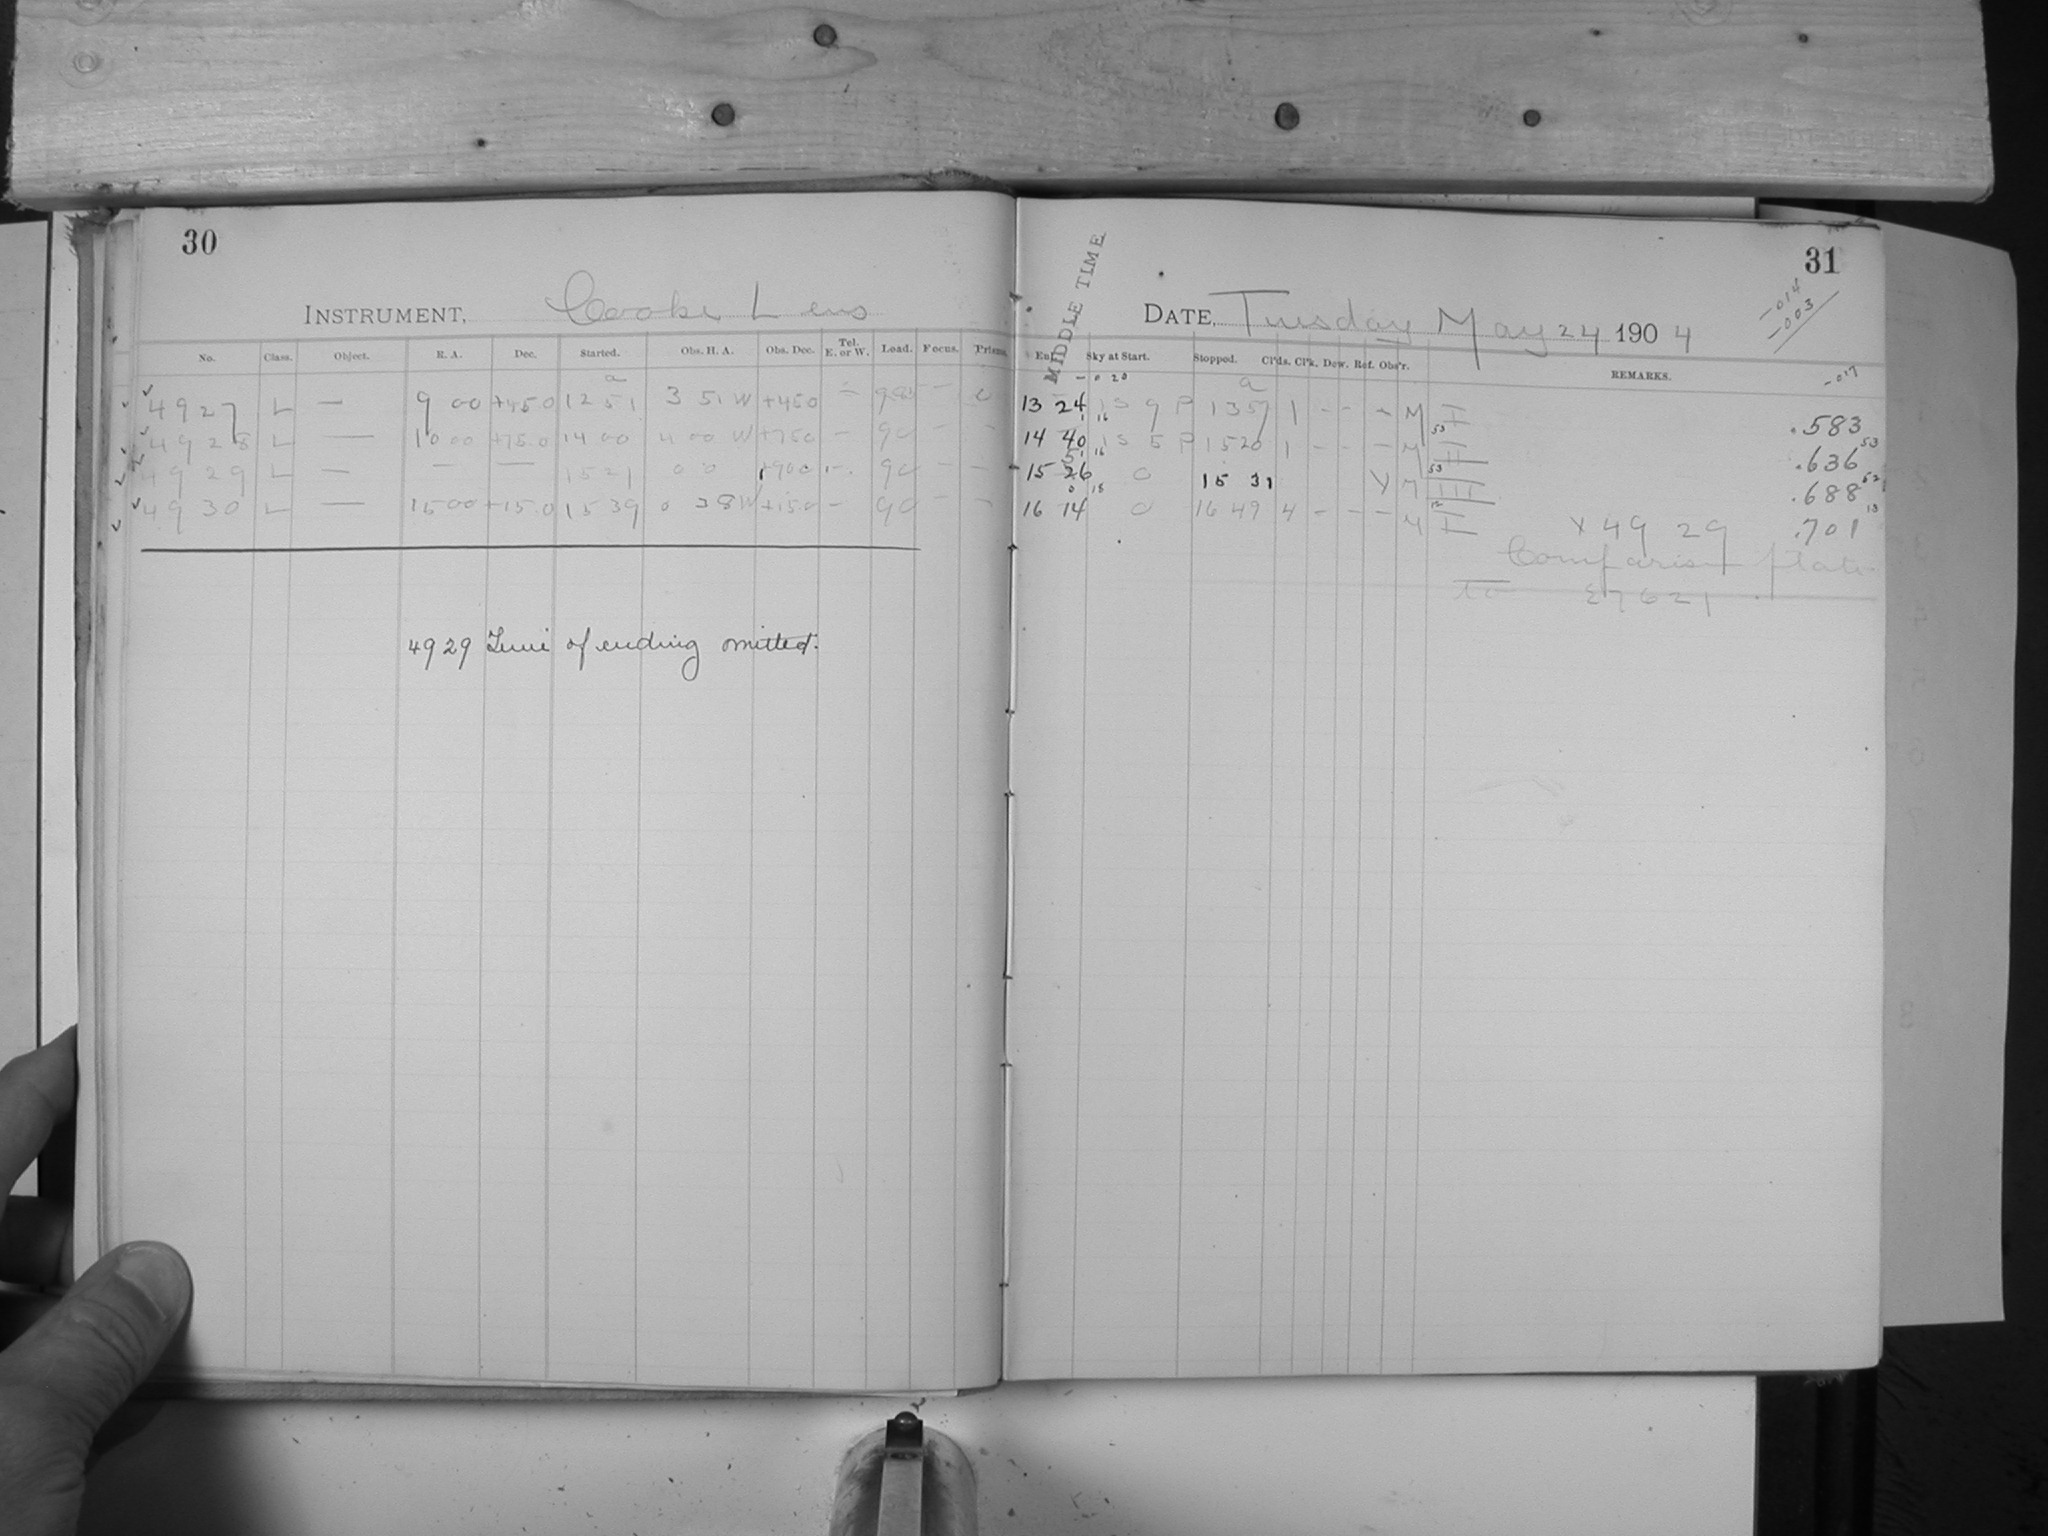 30
INSTRUMENT, Cooke Lens
No. Class. Object. R. A. Dec. Started. Obs. H. A. Obs. Dec. Tel. E. or W. Load. Focus. Prisms.
a
4927 L — 9 00 +45.0 12 51 3 51 W +45.0 — 90 — 0
4928 L — 10 00 +75.0 14 00 4 00 W +75.0 — 90 — —
4929 L — — — 15 21 0 0 +90.0 — 90 — —
4930 L — 15 00 +15.0 15 39 0 38 W +15.0 — 90 — —
4929 Time of ending omitted.
31
MIDDLE TIME
DATE, Tuesday May 24 1904
-014
-003
-017
Sky at Start. Stopped. Cl'ds. Cl'k. Dew. Ref. Obs'r. REMARKS.
-0 20 a
13 24 1S 9 P 13 57 1 - - - M I .583
14 40 1S 5 P 15 20 1 - - - M II .636
15 26 0 15 31 Y M III .688
16 14 0 16 49 4 - - - M I × 49 29 .701
Comparison plate
to E7621